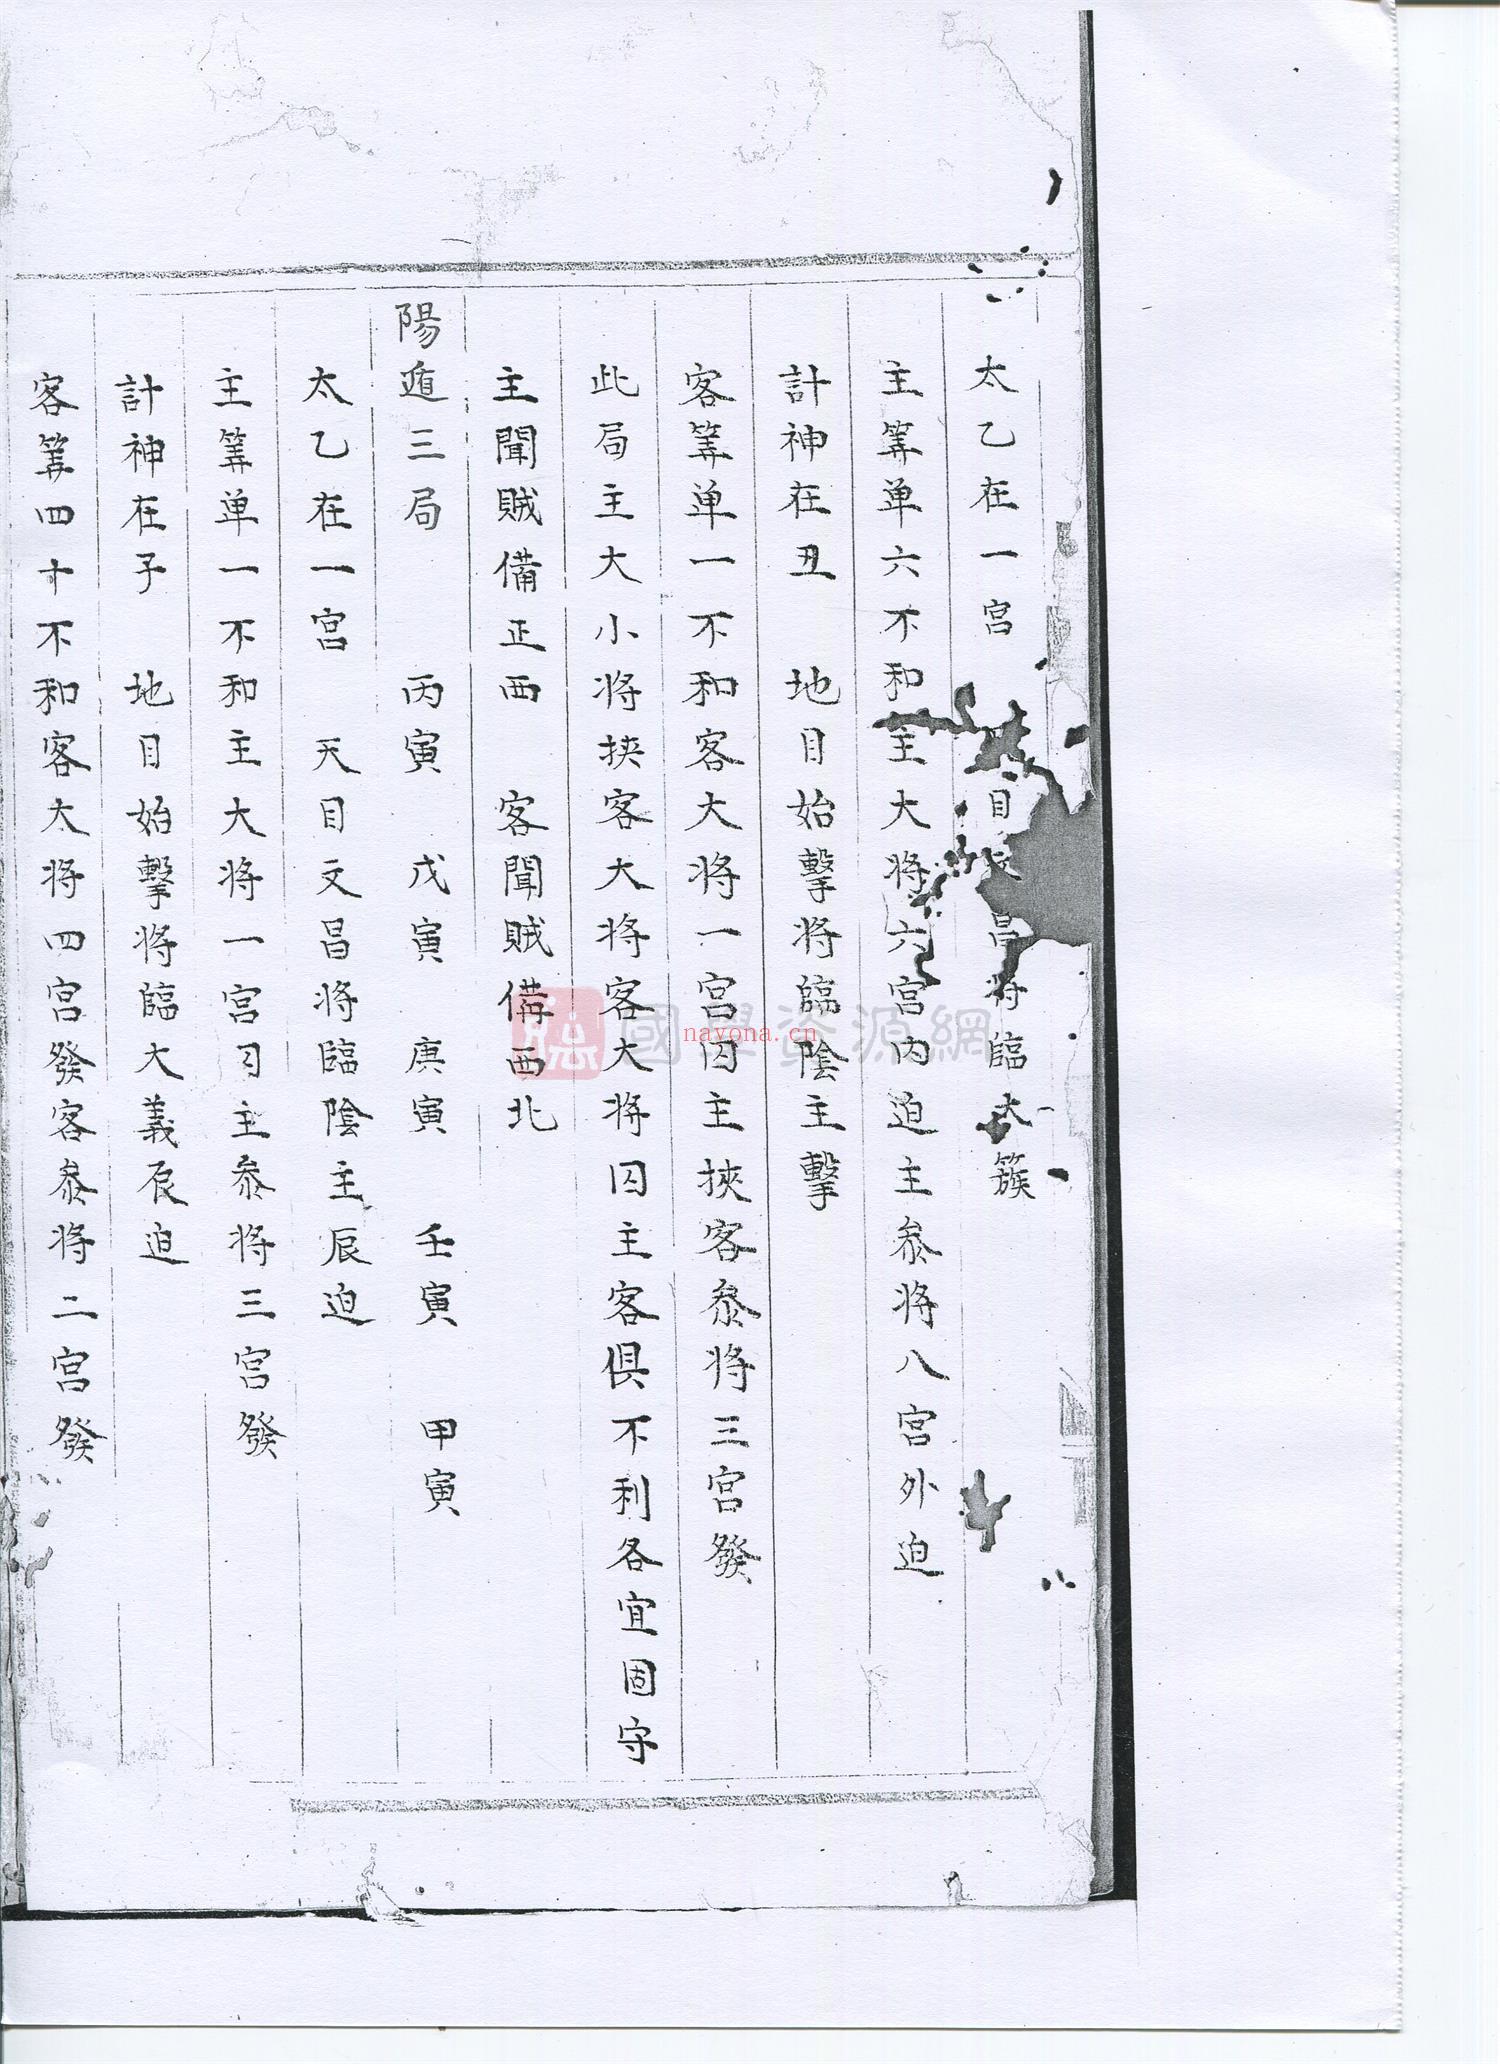 太乙在一宫 目文昌将臨大簇
主筭单六不和主大将六宫内迫主叅将八宫外迫
計神在丑 地目始擊将臨陰主擊
客筭单一不和客大将一宫囚主挾客叅将三宫發
此局主大小将挟客大将客大将囚主客俱不利各宜固守
主聞賊備正西 客聞賊偹西北
陽遁三局 丙寅 戊寅 庚寅 壬寅 甲寅
太乙在一宫 天目文昌将臨陰主辰迫
主筭单一不和主大将一宫囚主叅将三宫發
計神在子 地目始擊将臨大義辰迫
客筭四十不和客大将四宫發客叅将二宫發
國學資源網
nayona.cn